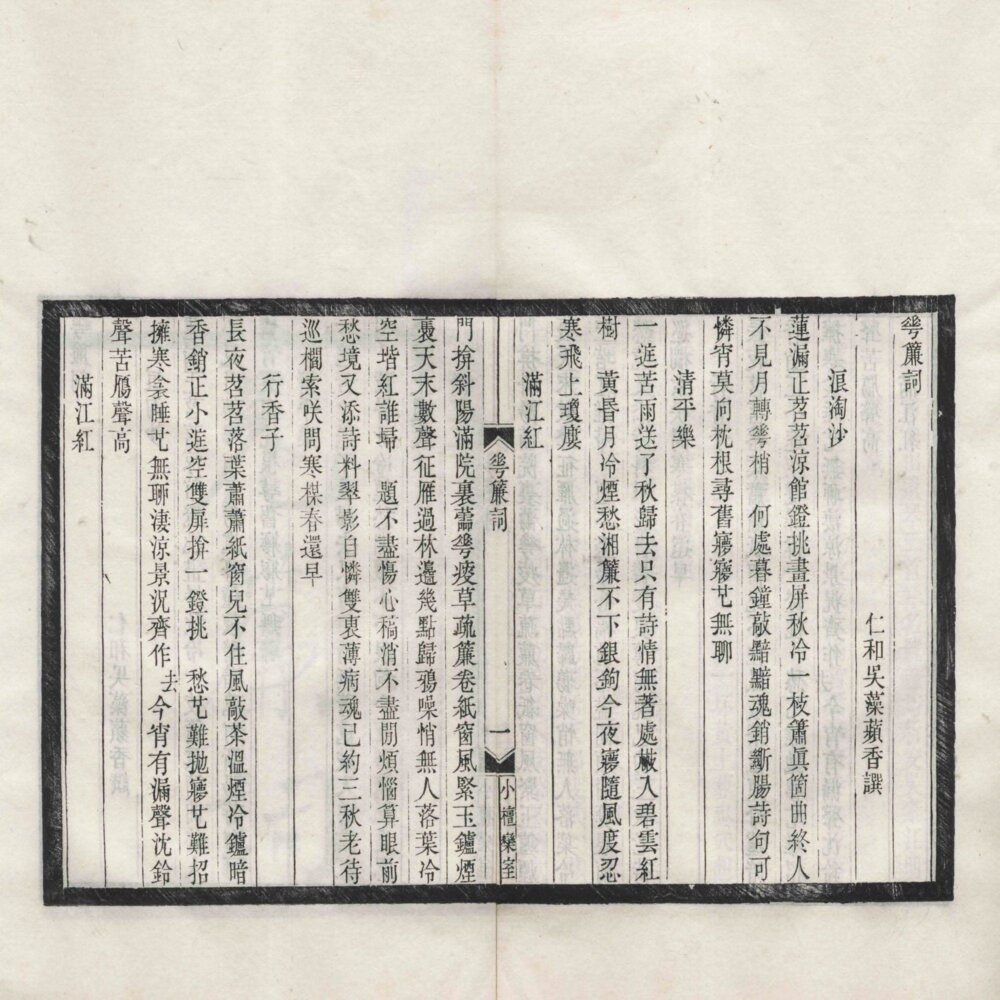 蕚簾詞
仁和吳藻蘋香譔
浪淘沙
蓮漏正苕苕涼館鐙挑畫屏秋冷一枝簫眞箇曲終人
不見月轉蕚梢　何處暮鐘敲黯黯魂銷斷腸詩句可
憐宵莫向枕根尋舊㝱㝱也無聊
清平樂
一逰苦雨送了秋歸去只有詩情無著處㪚入碧雲紅
樹　黃昏月冷煙愁湘簾不下銀鉤今夜㝱隨風度忍
寒飛上瓊廔
滿江紅
蕚簾詞
一
小檀欒室
門揜斜陽滿院裏蕭蕚瘦草疏簾卷紙窗風緊玉鑪煙
裊天末數聲征雁過林邊幾點歸鴉噪悄無人落葉冷
空堦紅誰埽　題不盡傷心稿消不盡閒煩惱算眼前
愁境又添詩料翠影自憐雙袖薄病魂已約三秋老待
巡檐索咲問寒楳春還早
行香子
長夜苕苕落葉蕭蕭紙窗兒不住風敲茶溫煙冷鑪暗
香銷正小逰空雙屏揜一鐙挑　愁也難拋㝱也難招
擁寒衾睡也無聊淒涼景況齊作去今宵有漏聲沈鈴
聲苦鴈聲高
滿江紅